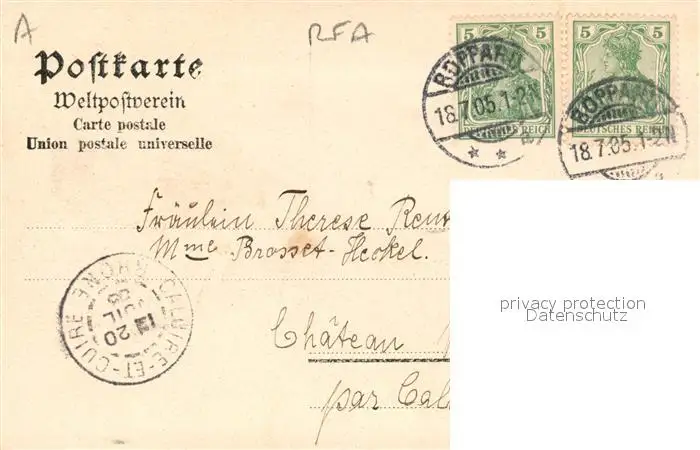 A
RFA
Postkarte
Weltpostverein
Carte postale
Union postale universelle
5 5
5 5
DEUTSCHES REICH
DEUTSCHES REICH
BOPPARD
18.7.05.1-2N
BOPPARD
18.7.05.1-2N
Fräulein Therese
Mme Brosset-Heckel.
Château
par Cal
CALUIRE-ET-CUIRE
RHONE
20
JUIL
05
privacy protection
Datenschutz